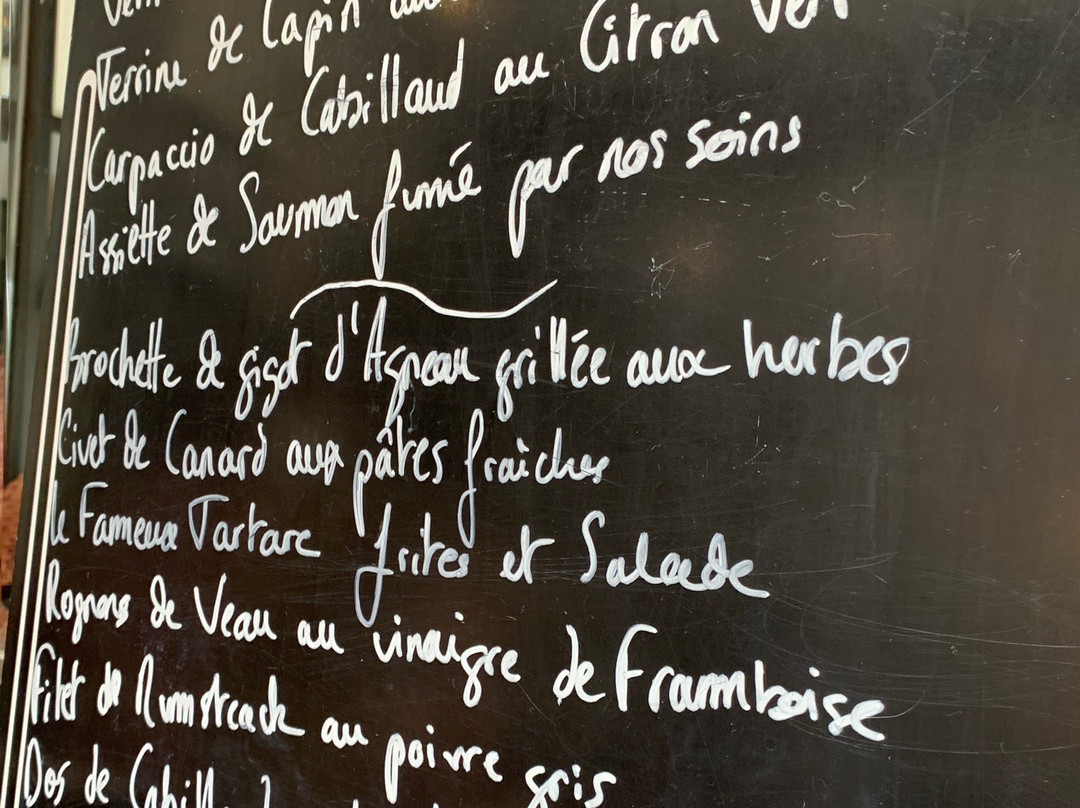 Terrine de Lapin
Carpaccio de Cabillaud au Citron Vert
Assiette de Saumon fumé par nos soins
Brochette de gigot d'Agneau grillée aux herbes
Civet de Canard aux pâtes fraîches
Le Fameux Tartare frites et Salade
Rognons de Veau au vinaigre de Framboise
Filet de Rumsteack au poivre gris
Dos de